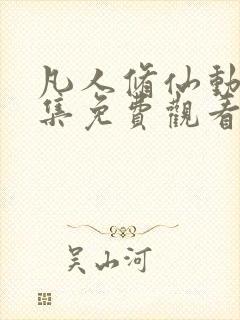 凡人脩仙動
集免費觀看
吴山河